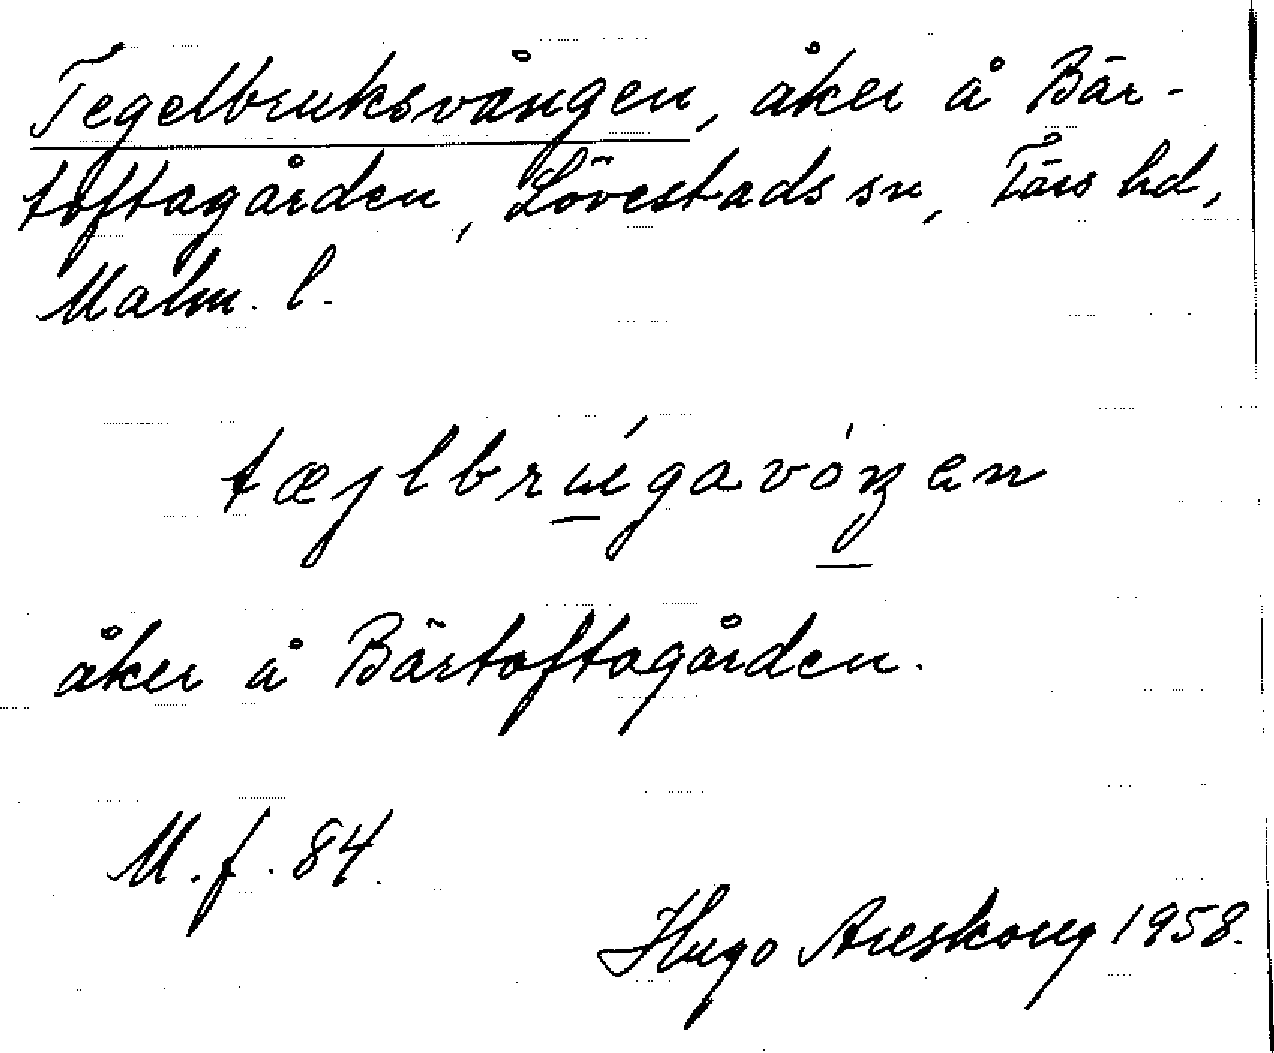 Tegelbruksvången, åker å Bär-
toftagården, Lövestads sn, Färs hd,
Malm. l.
tæjlbrúgavóŋen
åker å Bärtoftagården.
M. f. 84.
Hugo Areskoug 1958.